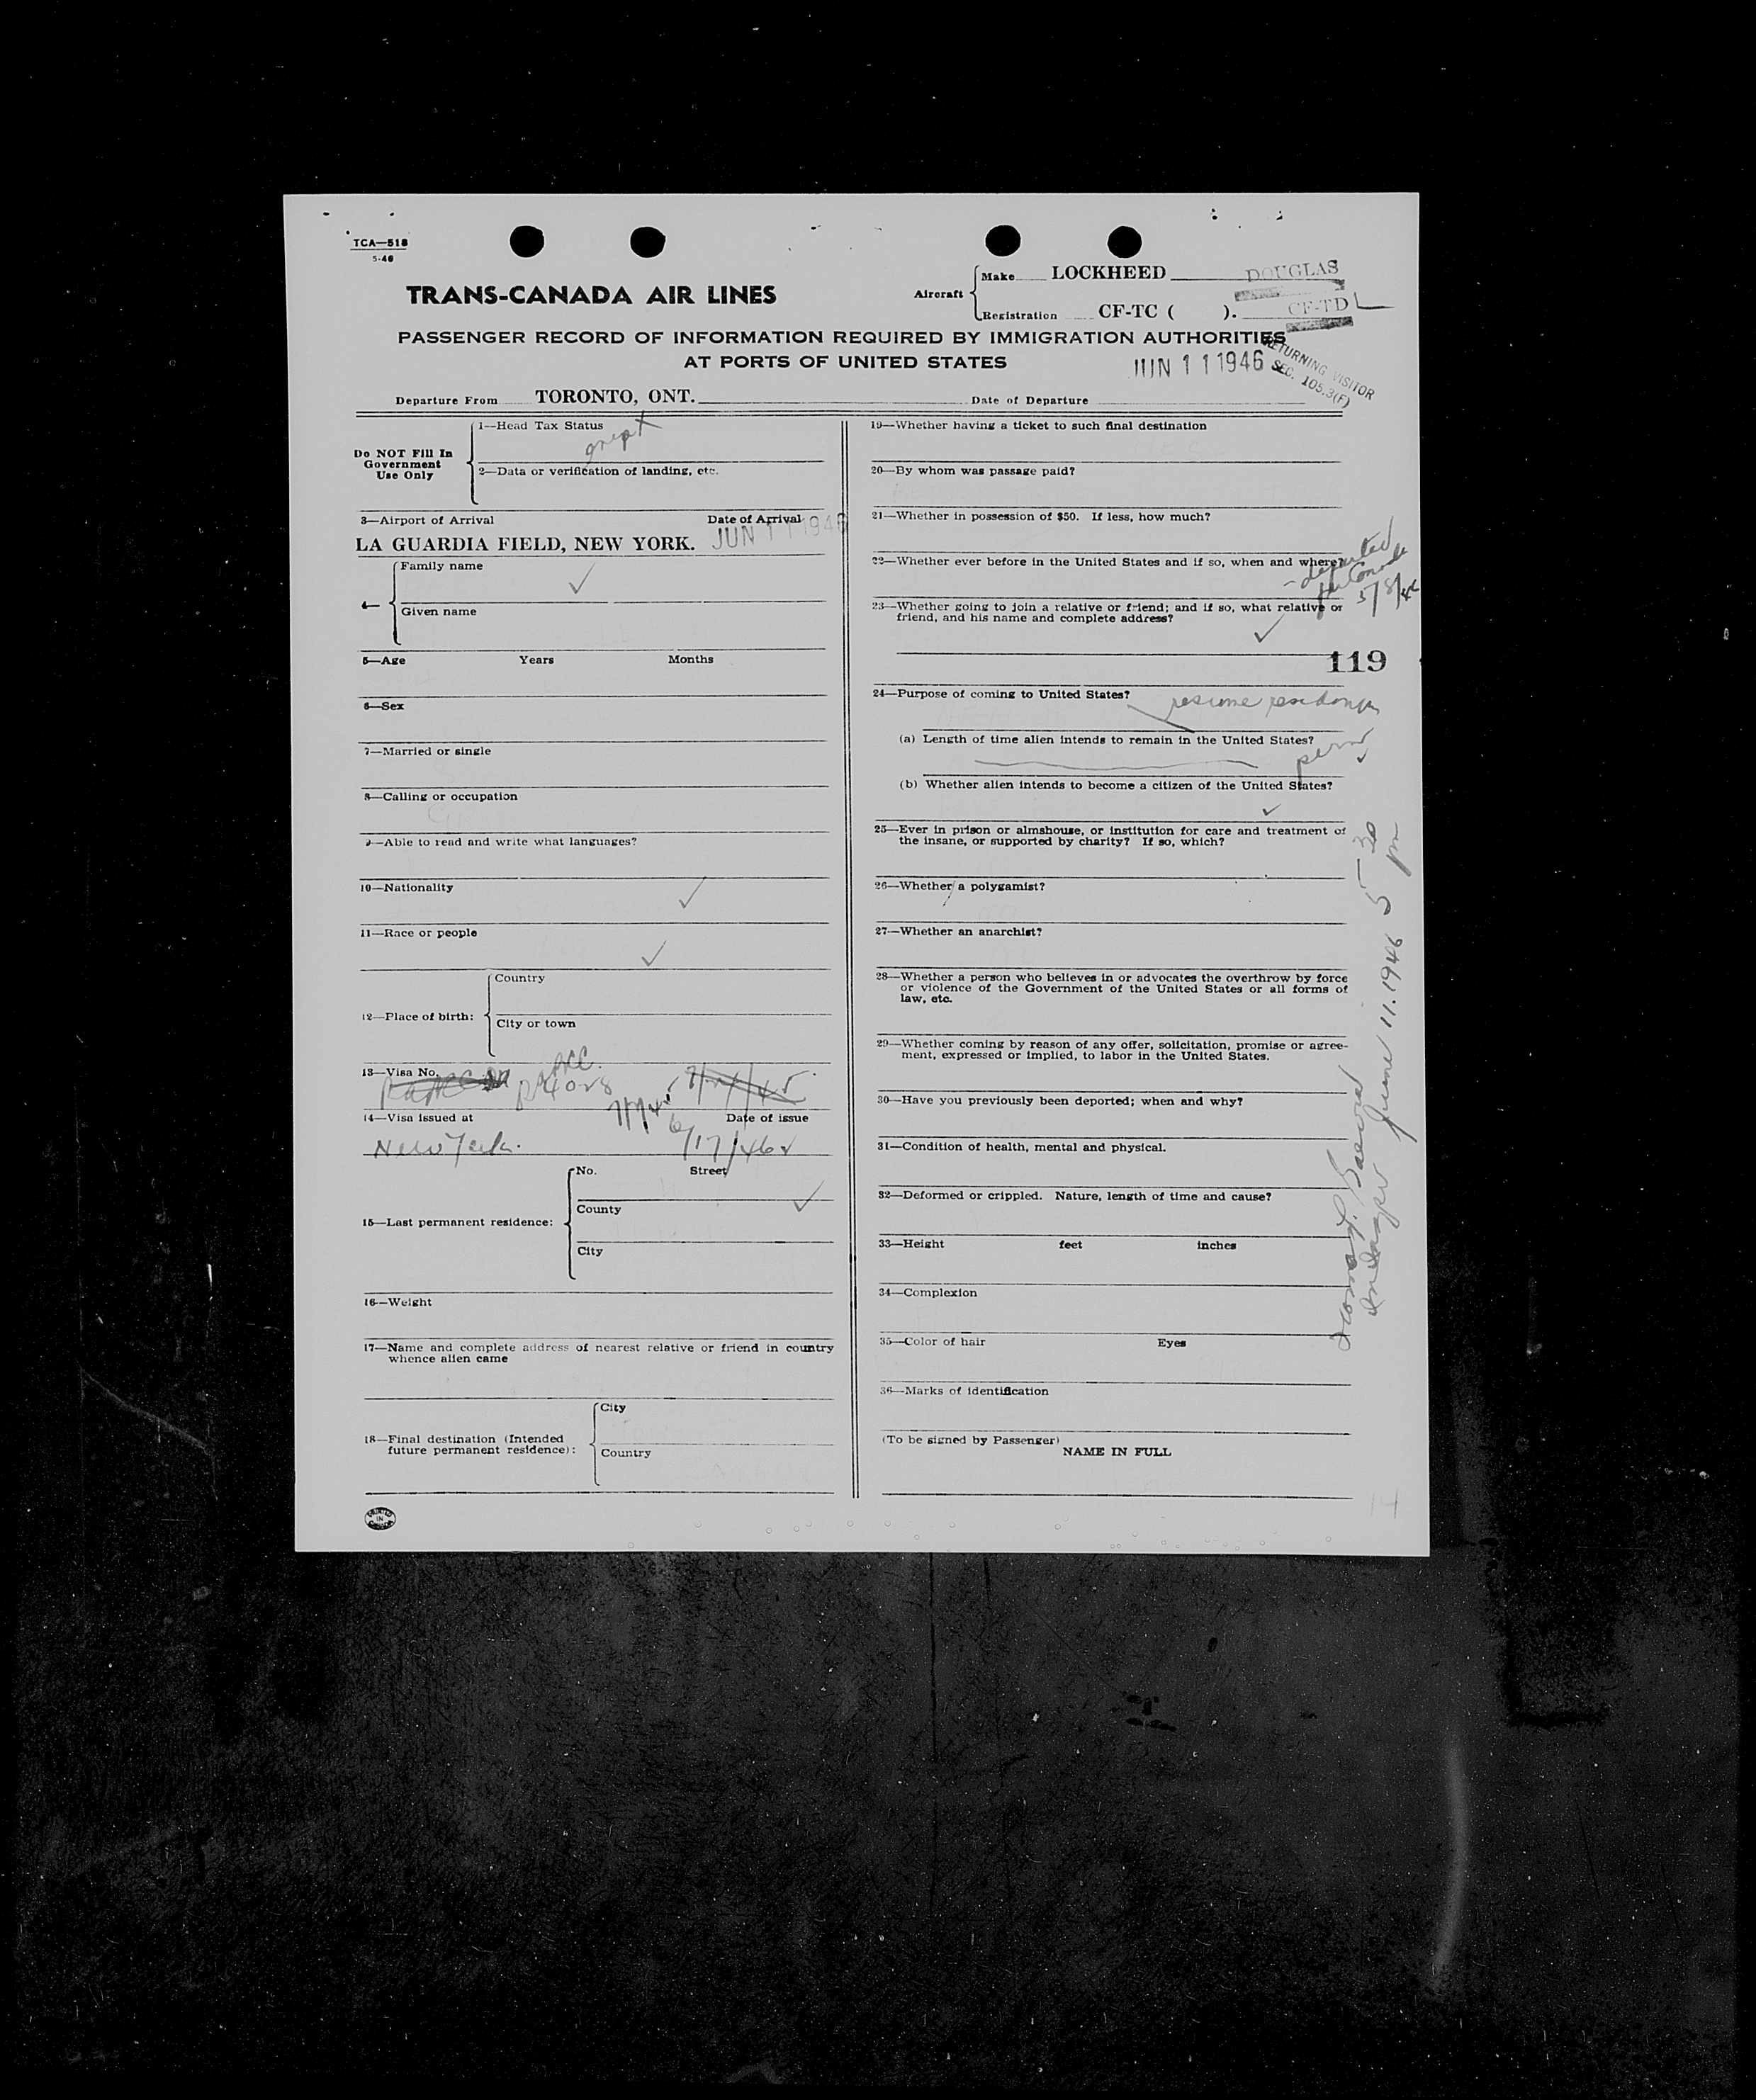 TCA—518
5-46
TRANS-CANADA AIR LINES
Aircraft
Make LOCKHEED DOUGLAS
Registration CF-TC ( ). CF-TD L
PASSENGER RECORD OF INFORMATION REQUIRED BY IMMIGRATION AUTHORITIES
AT PORTS OF UNITED STATES
JUN 11 1946
RETURNING VISITOR
SEC. 105.3(F)
Departure From TORONTO, ONT. Date of Departure
Do NOT Fill In
Government
Use Only
1—Head Tax Status
2—Data or verification of landing, etc.
3—Airport of Arrival Date of Arrival
LA GUARDIA FIELD, NEW YORK. JUN 11 1946
4—
Family name
Given name
5—Age Years Months
6—Sex
7—Married or single
8—Calling or occupation
9—Able to read and write what languages?
10—Nationality
11—Race or people
12—Place of birth:
Country
City or town
13—Visa No.
4028
14—Visa issued at Date of issue
New York. 6/17/46
15—Last permanent residence:
No. Street
County
City
16—Weight
17—Name and complete address of nearest relative or friend in country
whence alien came
18—Final destination (Intended
future permanent residence):
City
Country
PRINTED
IN
CANADA
19—Whether having a ticket to such final destination
20—By whom was passage paid?
21—Whether in possession of $50. If less, how much?
22—Whether ever before in the United States and if so, when and where?
departed
for Canada
5/8/46
23—Whether going to join a relative or friend; and if so, what relative or
friend, and his name and complete address?
119
24—Purpose of coming to United States?
resume residence
(a) Length of time alien intends to remain in the United States?
perm
(b) Whether alien intends to become a citizen of the United States?
25—Ever in prison or almshouse, or institution for care and treatment of
the insane, or supported by charity? If so, which?
26—Whether a polygamist?
27—Whether an anarchist?
28—Whether a person who believes in or advocates the overthrow by force
or violence of the Government of the United States or all forms of
law, etc.
29—Whether coming by reason of any offer, solicitation, promise or agree-
ment, expressed or implied, to labor in the United States.
30—Have you previously been deported; when and why?
31—Condition of health, mental and physical.
32—Deformed or crippled. Nature, length of time and cause?
33—Height feet inches
34—Complexion
35—Color of hair Eyes
36—Marks of identification
(To be signed by Passenger)
NAME IN FULL
June 11. 1946 5 30 pm